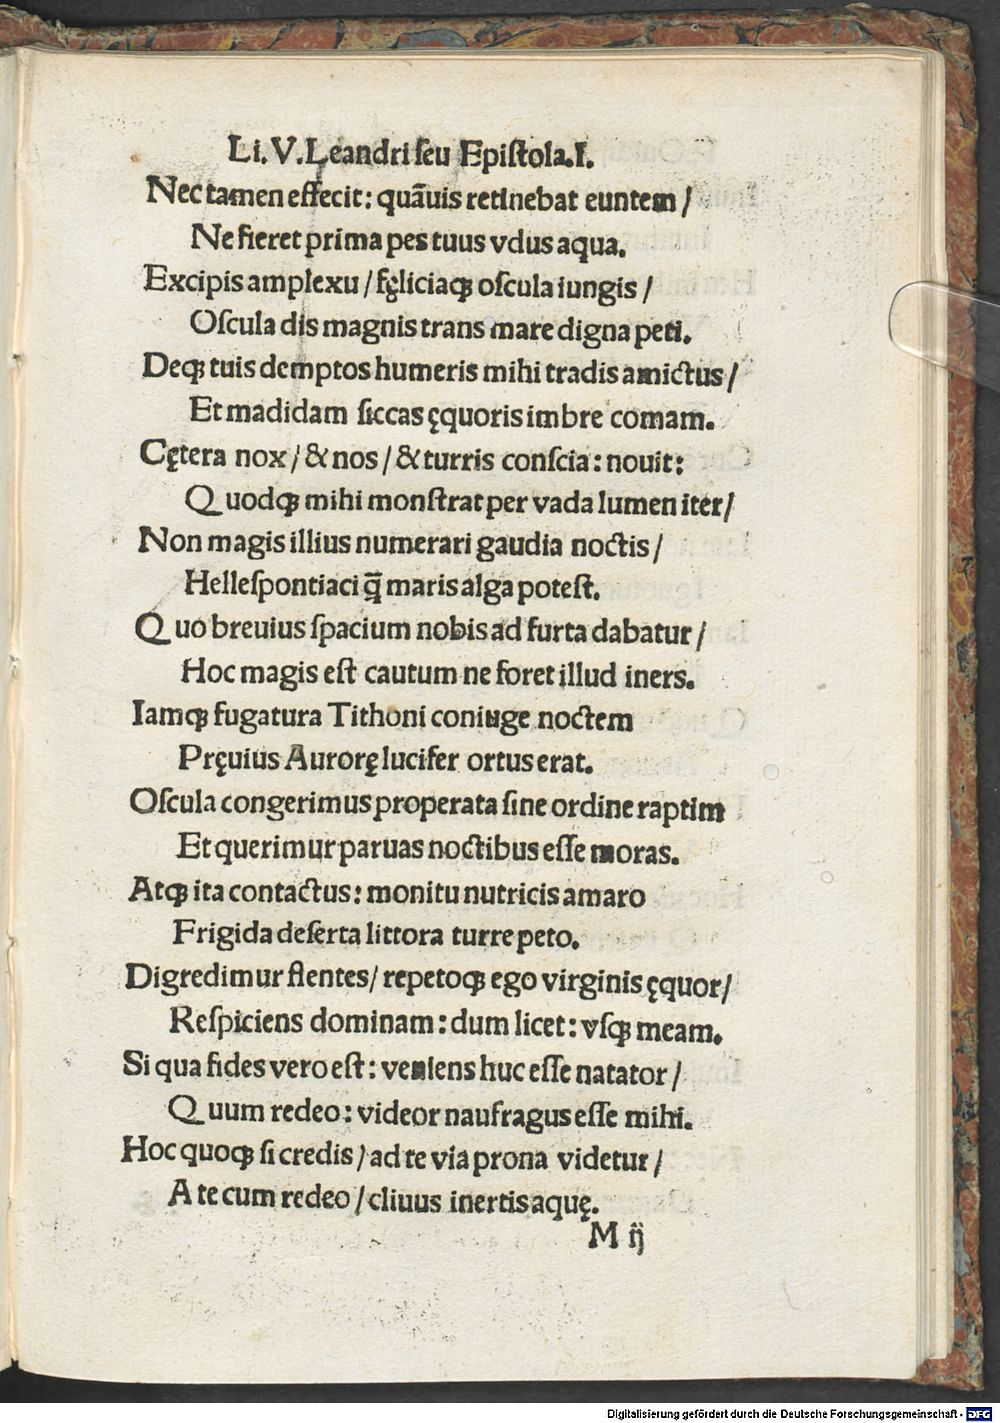 Li. V. Leandri ſeu Epiſtola. I.
Nec tamen effecit: quãuis retinebat euntem /
Ne fieret prima pes tuus vdus aqua.
Excipis amplexu / fęliciaqꝫ oſcula iungis /
Oſcula dis magnis trans mare digna peti.
Deqꝫ tuis demptos humeris mihi tradis amictus /
Et madidam ſiccas ęquoris imbre comam.
Cętera nox / & nos / & turris conſcia: nouit:
Quodqꝫ mihi monſtrat per vada lumen iter /
Non magis illius numerari gaudia noctis /
Helleſpontiaci q̃ maris alga poteſt.
Quo breuius ſpacium nobis ad furta dabatur /
Hoc magis eſt cautum ne foret illud iners.
Iamqꝫ fugatura Tithoni coniuge noctem
Pręuius Aurorę lucifer ortus erat.
Oſcula congerimus properata ſine ordine raptim
Et querimur paruas noctibus eſſe moras.
Atqꝫ ita contactus: monitu nutricis amaro
Frigida deſerta littora turre peto.
Digredimur flentes / repetoqꝫ ego virginis ęquor /
Reſpiciens dominam: dum licet: vſqꝫ meam.
Si qua fides vero eſt: veniens huc eſſe natator /
Quum redeo: videor naufragus eſſe mihi.
Hoc quoqꝫ ſi credis / ad te via prona videtur /
A te cum redeo / cliuus inertis aquę.
M ij
Digitalisierung gefördert durch die Deutsche Forschungsgemeinschaft - DFG